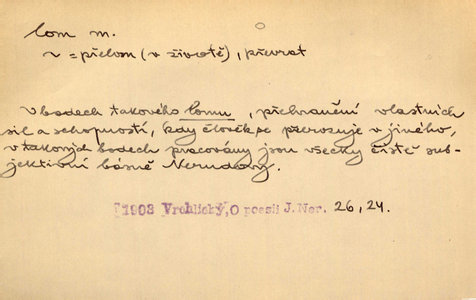 lom m.
~ = přelom (v životě), převrat
V bodech takového lomu, přehranění vlastních
sil a schopností, kdy člověk se přerozuje v jiného,
v takových bodech pracovány jsou všecky čistě sub-
jektivní básně Nerudovy.
1903 Vrchlický, O poesii J. Ner. 26, 24.